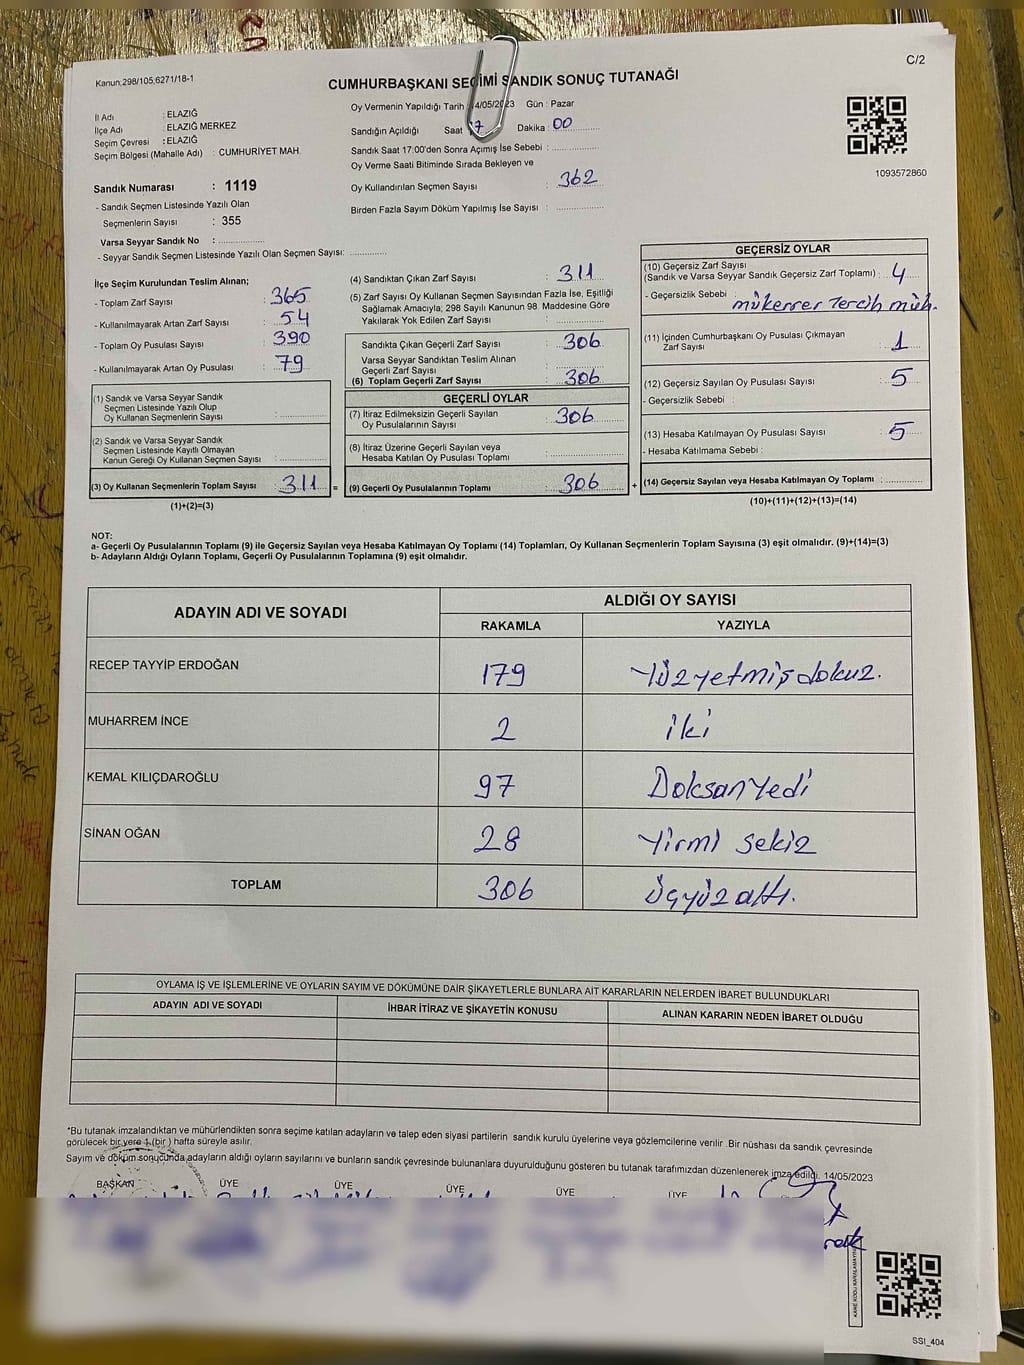 C/2
Kanun:298/105,6271/18-1
CUMHURBAŞKANI SEÇİMİ SANDIK SONUÇ TUTANAĞI
İl Adı : ELAZIĞ
İlçe Adı : ELAZIĞ MERKEZ
Seçim Çevresi : ELAZIĞ
Seçim Bölgesi (Mahalle Adı) : CUMHURİYET MAH.
Oy Vermenin Yapıldığı Tarih 14/05/2023 Gün : Pazar
Sandığın Açıldığı Saat 17 Dakika : 00
Sandık Saat 17:00'den Sonra Açımış İse Sebebi :
Oy Verme Saati Bitiminde Sırada Bekleyen ve
Oy Kullandırılan Seçmen Sayısı : 362
Birden Fazla Sayım Döküm Yapılmış İse Sayısı :
1093572860
Sandık Numarası : 1119
- Sandık Seçmen Listesinde Yazılı Olan
Seçmenlerin Sayısı : 355
Varsa Seyyar Sandık No :
- Seyyar Sandık Seçmen Listesinde Yazılı Olan Seçmen Sayısı:
İlçe Seçim Kurulundan Teslim Alınan;
- Toplam Zarf Sayısı : 365
- Kullanılmayarak Artan Zarf Sayısı : 54
- Toplam Oy Pusulası Sayısı : 390
- Kullanılmayarak Artan Oy Pusulası : 79
(1) Sandık ve Varsa Seyyar Sandık
Seçmen Listesinde Yazılı Olup
Oy Kullanan Seçmenlerin Sayısı :
(2) Sandık ve Varsa Seyyar Sandık
Seçmen Listesinde Kayıtlı Olmayan
Kanun Gereği Oy Kullanan Seçmen Sayısı :
(3) Oy Kullanan Seçmenlerin Toplam Sayısı : 311 =
(1)+(2)=(3)
(4) Sandıktan Çıkan Zarf Sayısı : 311
(5) Zarf Sayısı Oy Kullanan Seçmen Sayısından Fazla İse, Eşitliği
Sağlamak Amacıyla; 298 Sayılı Kanunun 98. Maddesine Göre
Yakılarak Yok Edilen Zarf Sayısı :
Sandıkta Çıkan Geçerli Zarf Sayısı : 306
Varsa Seyyar Sandıktan Teslim Alınan
Geçerli Zarf Sayısı :
(6) Toplam Geçerli Zarf Sayısı : 306
GEÇERLİ OYLAR
(7) İtiraz Edilmeksizin Geçerli Sayılan
Oy Pusulalarının Sayısı : 306
(8) İtiraz Üzerine Geçerli Sayılan veya
Hesaba Katılan Oy Pusulası Toplamı :
(9) Geçerli Oy Pusulalarının Toplamı : 306 +
GEÇERSİZ OYLAR
(10) Geçersiz Zarf Sayısı
(Sandık ve Varsa Seyyar Sandık Geçersiz Zarf Toplamı) : 4
- Geçersizlik Sebebi : mükerrer tercih müh.
(11) İçinden Cumhurbaşkanı Oy Pusulası Çıkmayan
Zarf Sayısı : 1
(12) Geçersiz Sayılan Oy Pusulası Sayısı : 5
- Geçersizlik Sebebi :
(13) Hesaba Katılmayan Oy Pusulası Sayısı : 5
- Hesaba Katılmama Sebebi :
(14) Geçersiz Sayılan veya Hesaba Katılmayan Oy Toplamı :
(10)+(11)+(12)+(13)=(14)
NOT:
a- Geçerli Oy Pusulalarının Toplamı (9) ile Geçersiz Sayılan veya Hesaba Katılmayan Oy Toplamı (14) Toplamları, Oy Kullanan Seçmenlerin Toplam Sayısına (3) eşit olmalıdır. (9)+(14)=(3)
b- Adayların Aldığı Oyların Toplamı, Geçerli Oy Pusulalarının Toplamına (9) eşit olmalıdır.
ADAYIN ADI VE SOYADI
ALDIĞI OY SAYISI
RAKAMLA YAZIYLA
RECEP TAYYİP ERDOĞAN 179 Yüzyetmişdokuz.
MUHARREM İNCE 2 iki
KEMAL KILIÇDAROĞLU 97 Doksan Yedi
SİNAN OĞAN 28 Yirmi sekiz
TOPLAM 306 üçyüz altı.
OYLAMA İŞ VE İŞLEMLERİNE VE OYLARIN SAYIM VE DÖKÜMÜNE DAİR ŞİKAYETLERLE BUNLARA AİT KARARLARIN NELERDEN İBARET BULUNDUKLARI
ADAYIN ADI VE SOYADI İHBAR İTİRAZ VE ŞİKAYETİN KONUSU ALINAN KARARIN NEDEN İBARET OLDUĞU
*Bu tutanak imzalandıktan ve mühürlendikten sonra seçime katılan adayların ve talep eden siyasi partilerin sandık kurulu üyelerine veya gözlemcilerine verilir .Bir nüshası da sandık çevresinde
görülecek bir yere 1 (bir ) hafta süreyle asılır.
Sayım ve döküm sonucunda adayların aldığı oyların sayılarını ve bunların sandık çevresinde bulunanlara duyurulduğunu gösteren bu tutanak tarafımızdan düzenlenerek imza edildi. 14/05/2023
BAŞKAN ÜYE ÜYE ÜYE ÜYE ÜYE
SSI_404